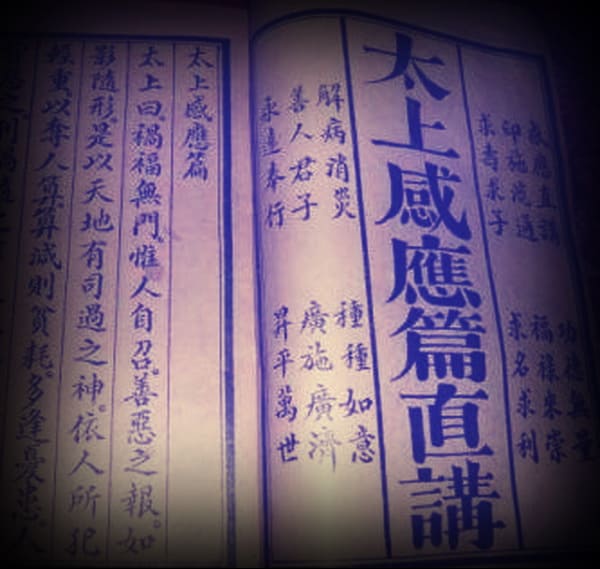 感應直講 功德無量
印施流通 福祿來崇
求壽求子 求名求利
太上感應篇直講
解病消災 種種如意
善人君子 廣施廣濟
永遠奉行 昇平萬世
太上感應篇
太上曰。禍福無門。惟人自召。善惡之報。如
影隨形。是以天地有司過之神。依人所犯
輕重。以奪人算。算減則貧耗。多逢憂患。人
惡之。刑禍隨之